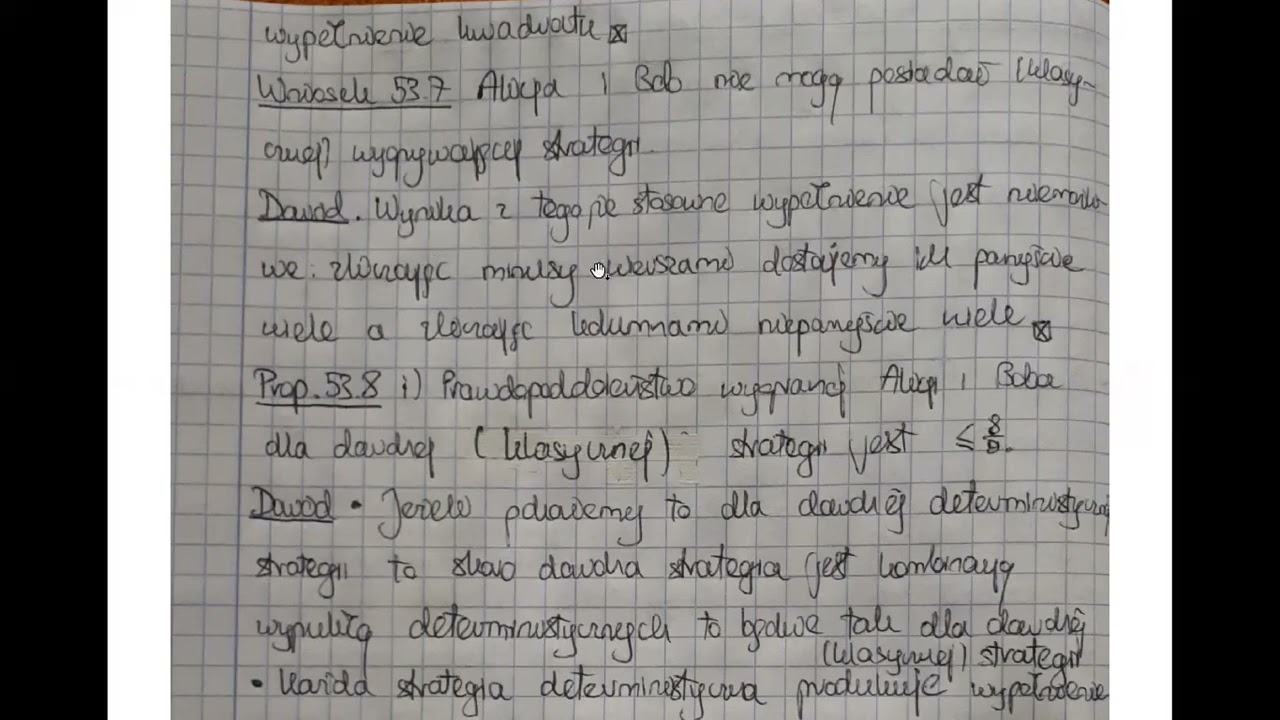 wypełnienie kwadratu ⊠
Wniosek 53.7 Alicja i Bob nie mogą posiadać (klasy-
cznej) wygrywającej strategii.
Dowód. Wynika z tego że stosowne wypełnienie jest niemożli-
we: zliczając minusy wierszami dostajemy ich parzyście
wiele a zliczając kolumnami nieparzyście wiele ⊠
Prop. 53.8 i) Prawdopodobieństwo wygranej Alicji i Boba
dla dowolnej (klasycznej) strategii jest ≤ 8/9.
Dowód • Jeżeli pokażemy to dla dowolnej deterministycznej
strategii to skoro dowolna strategia jest kombinacją
wypukłą deterministycznych to będzie tak dla dowolnej
(klasycznej) strategii
• Każda strategia deterministyczna produkuje wypełnienie